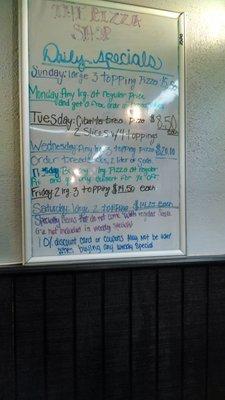 THE PIZZA
SHOP
Daily Specials
Sunday: large 3 topping Pizza
Monday Any lrg. at Regular Price
and get a Free order of
Tuesday: bread pizza $8.50
2 Slices w/4 toppings
Wednesday: Any lrg. 3 topping pizza $20.00
Order breadsticks, 2 liter of Soda
lrg Pizza at regular
and get any dessert for 1/2 OFF
Friday 2 lrg 3 topping $19.50 each
Saturday: large 2 topping each
Specialty Pizzas that do not come with regular
are not included in weekly specials
10% discount card or coupons May Not be used
when buying any Weekly Special